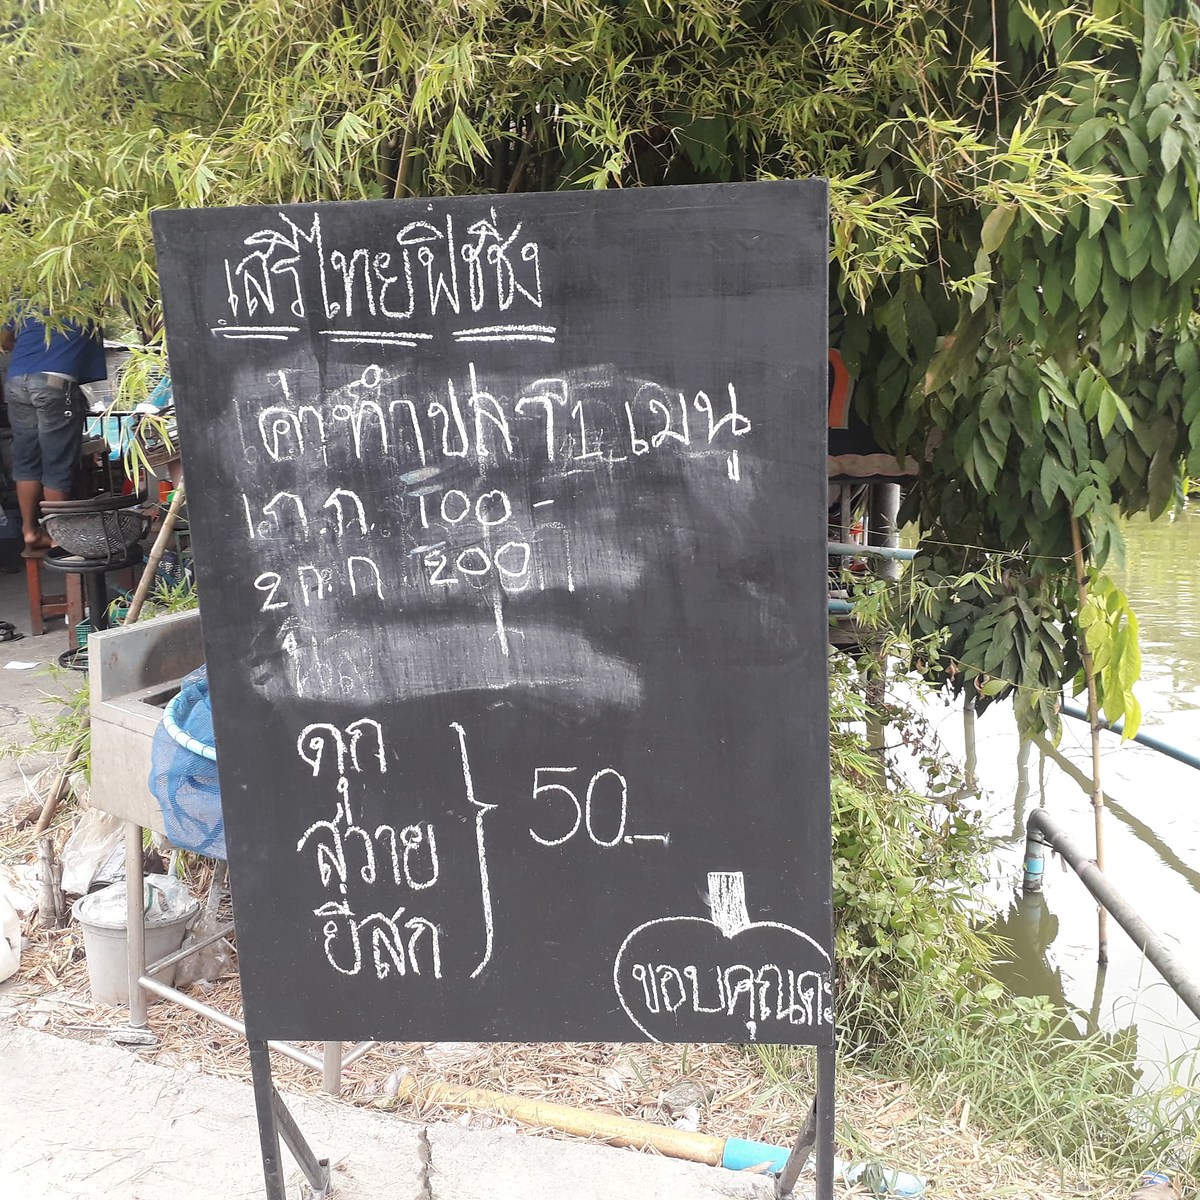 เสรีไทยฟิชชิ่ง
ค่าทำปลา 1 เมนู
1 ก.ก. 100 -
2 ก.ก. 200
ดุก
สวาย
ยี่สก
50.-
ขอบคุณค่ะ